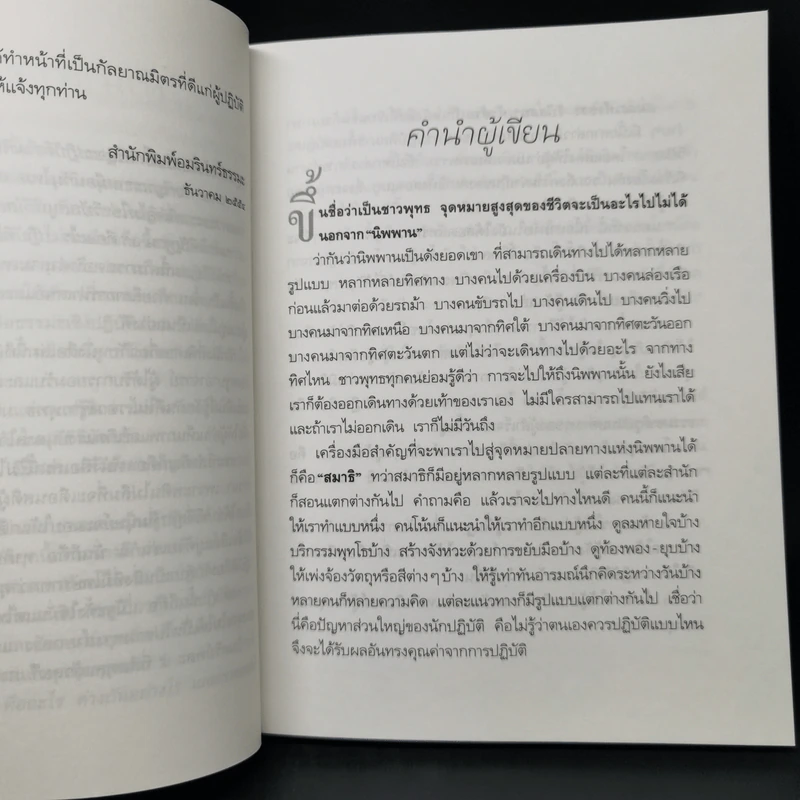 ทำหน้าที่เป็นกัลยาณมิตรที่ดีแก่ผู้ปฏิบัติ
แจ้งทุกท่าน
สำนักพิมพ์อมรินทร์ธรรมะ
ธันวาคม ๒๕๕๔
คำนำผู้เขียน
ขึ้นชื่อว่าเป็นชาวพุทธ จุดหมายสูงสุดของชีวิตจะเป็นอะไรไปไม่ได้
นอกจาก “นิพพาน”
ว่ากันว่านิพพานเป็นดังยอดเขา ที่สามารถเดินทางไปได้หลากหลาย
รูปแบบ หลากหลายทิศทาง บางคนไปด้วยเครื่องบิน บางคนล่องเรือ
ก่อนแล้วมาต่อด้วยรถม้า บางคนขับรถไป บางคนเดินไป บางคนวิ่งไป
บางคนมาจากทิศเหนือ บางคนมาจากทิศใต้ บางคนมาจากทิศตะวันออก
บางคนมาจากทิศตะวันตก แต่ไม่ว่าจะเดินทางไปด้วยอะไร จากทาง
ทิศไหน ชาวพุทธทุกคนย่อมรู้ดีว่า การจะไปให้ถึงนิพพานนั้น ยังไงเสีย
เราก็ต้องออกเดินทางด้วยเท้าของเราเอง ไม่มีใครสามารถไปแทนเราได้
และถ้าเราไม่ออกเดิน เราก็ไม่มีวันถึง
เครื่องมือสำคัญที่จะพาเราไปสู่จุดหมายปลายทางแห่งนิพพานได้
ก็คือ “สมาธิ” ทว่าสมาธิก็มีอยู่หลากหลายรูปแบบ แต่ละที่แต่ละสำนัก
ก็สอนแตกต่างกันไป คำถามคือ แล้วเราจะไปทางไหนดี คนนี้ก็แนะนำ
ให้เราทำแบบหนึ่ง คนโน้นก็แนะนำให้เราทำอีกแบบหนึ่ง ดูลมหายใจบ้าง
บริกรรมพุทโธบ้าง สร้างจังหวะด้วยการขยับมือบ้าง ดูท้องพอง - ยุบบ้าง
ให้เพ่งจ้องวัตถุหรือสีต่างๆ บ้าง ให้รู้เท่าทันอารมณ์นึกคิดระหว่างวันบ้าง
หลายคนก็หลายความคิด แต่ละแนวทางก็มีรูปแบบแตกต่างกันไป เชื่อว่า
นี่คือปัญหาส่วนใหญ่ของนักปฏิบัติ คือไม่รู้ว่าตนเองควรปฏิบัติแบบไหน
จึงจะได้รับผลอันทรงคุณค่าจากการปฏิบัติ